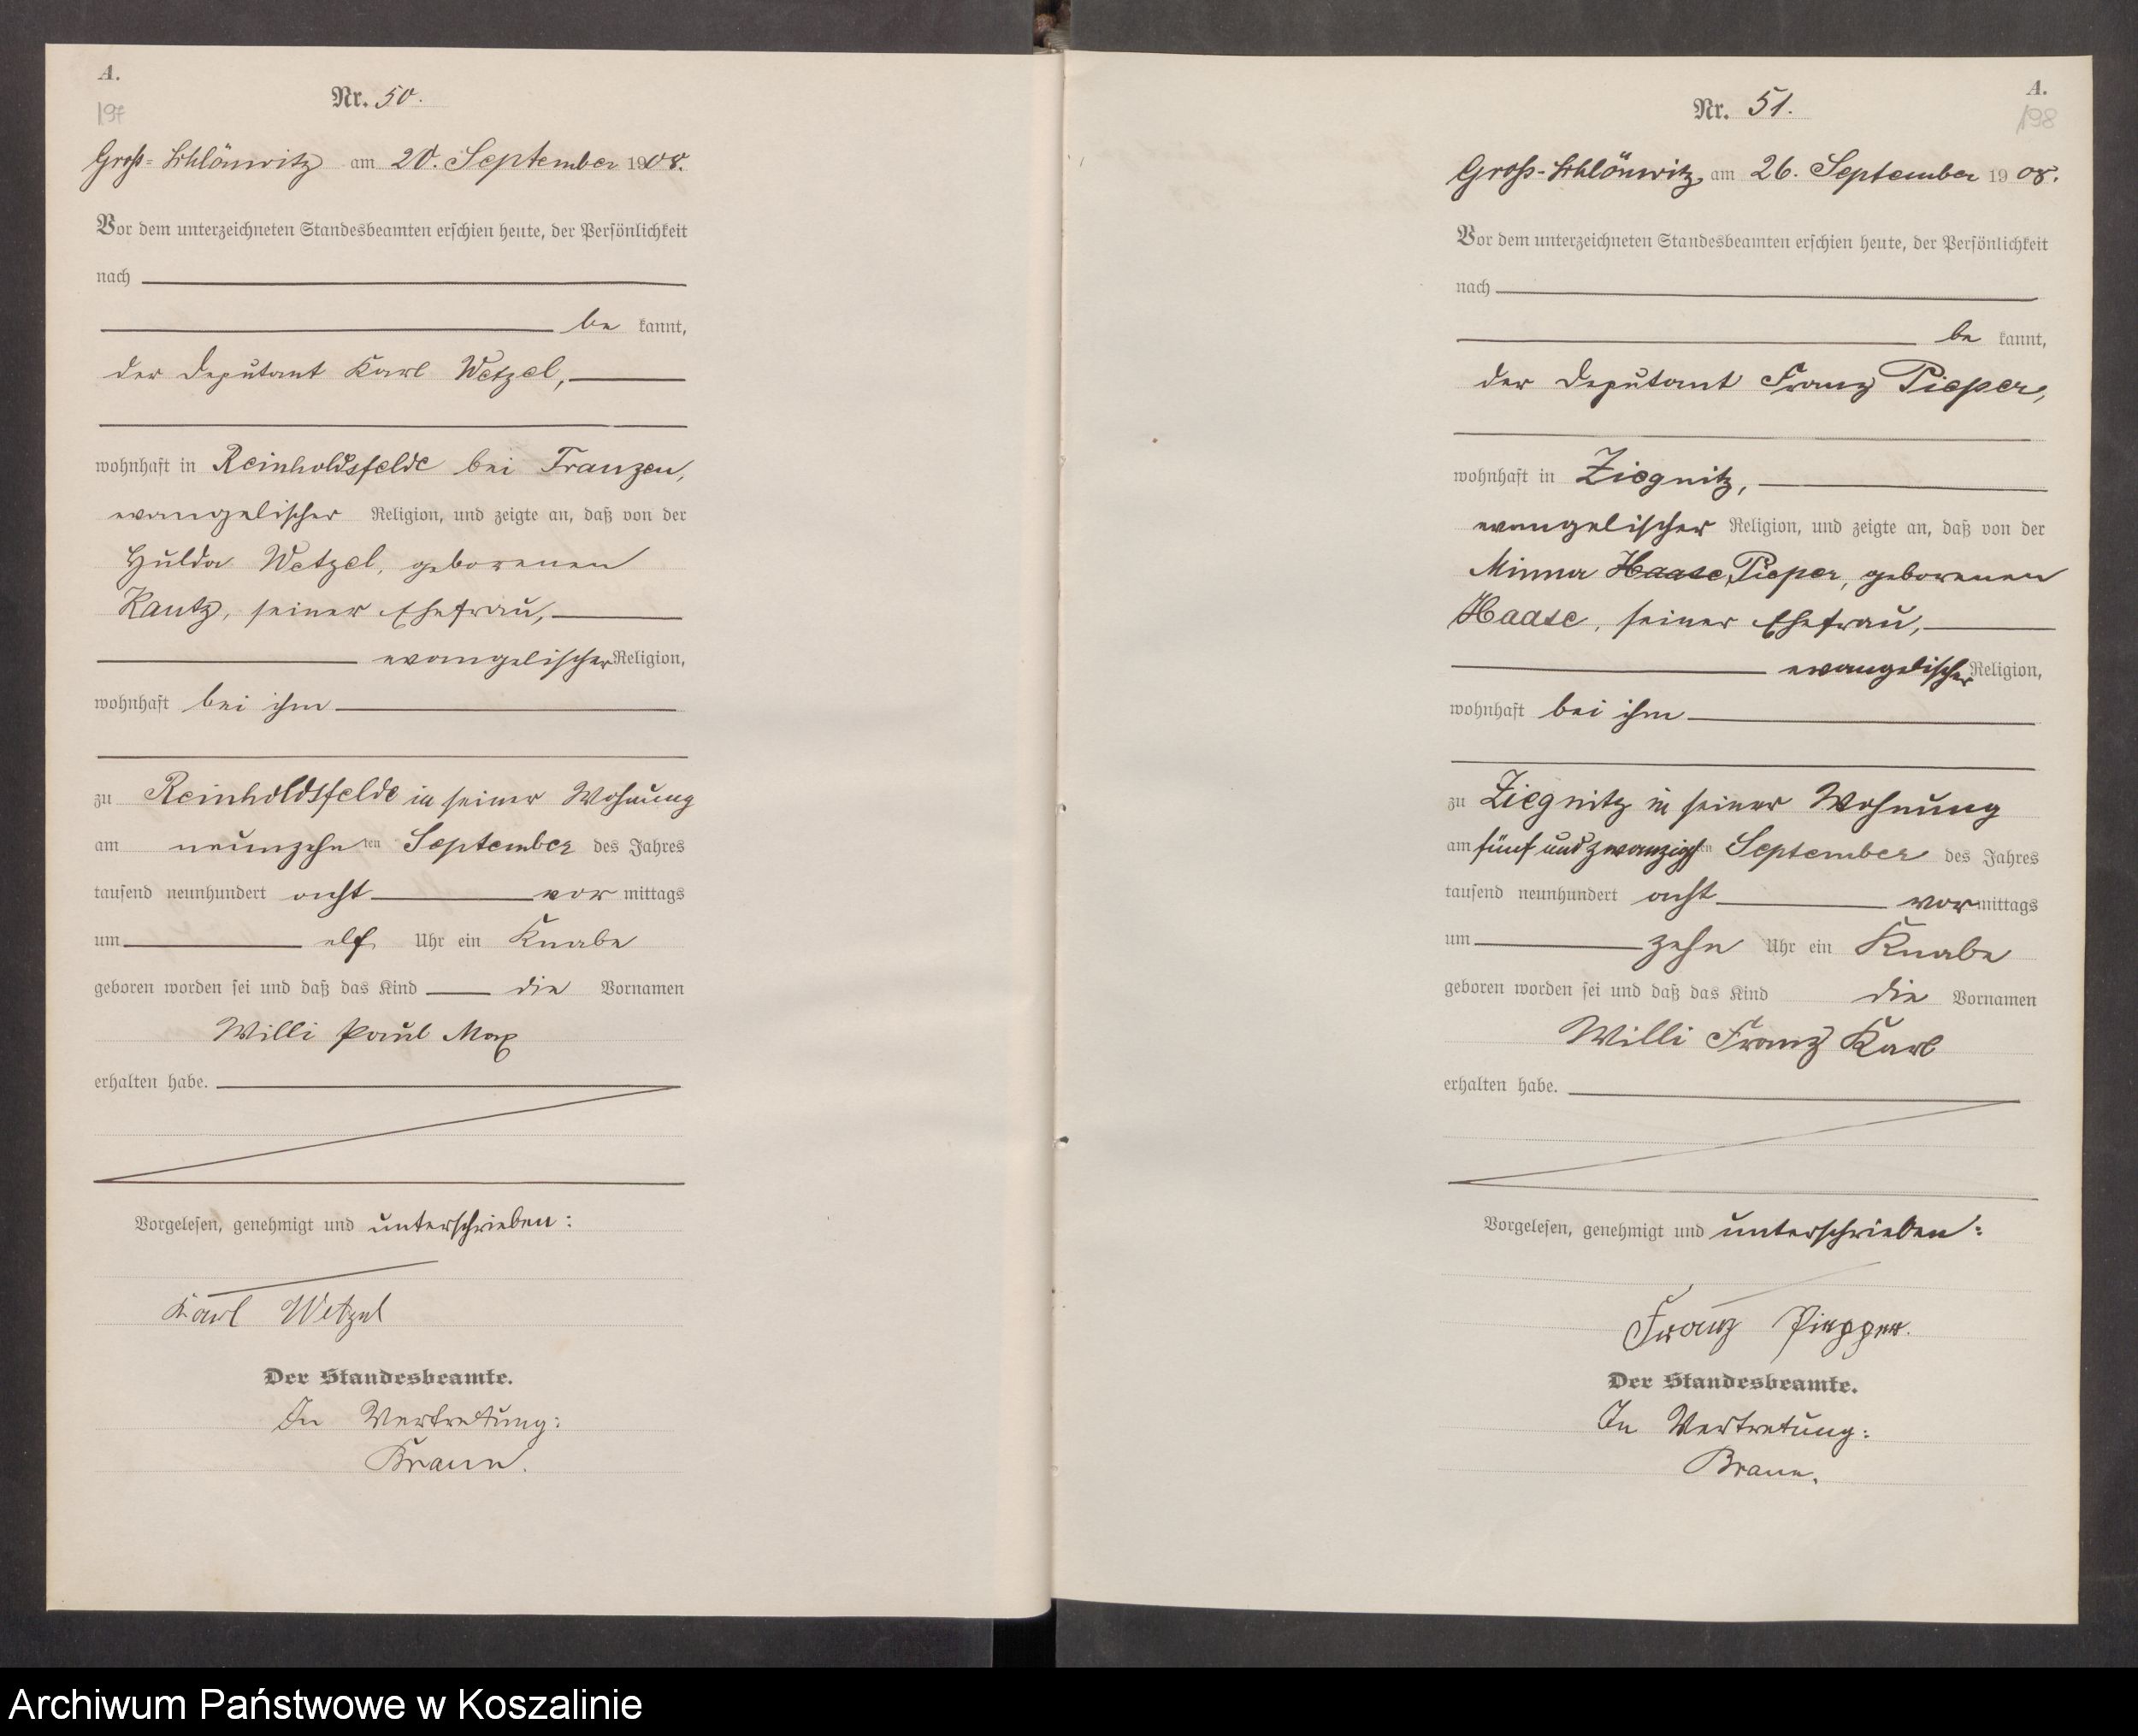 A.
197
Nr. 50.
Groß-Schlönwitz am 20. September 1908.
Vor dem unterzeichneten Standesbeamten erschien heute, der Persönlichkeit
nach
be kannt,
der Deputant Karl Wetzel,
wohnhaft in Reinholdsfelde bei Franzen,
evangelischer Religion, und zeigte an, daß von der
Hulda Wetzel, geborenen
Kautz, seiner Ehefrau,
evangelischer Religion,
wohnhaft bei ihm
zu Reinholdsfelde in seiner Wohnung
am neunzehnten September des Jahres
tausend neunhundert acht vor mittags
um elf Uhr ein Knabe
geboren worden sei und daß das Kind die Vornamen
Willi Paul Max
erhalten habe.
Vorgelesen, genehmigt und unterschrieben:
Karl Wetzel
Der Standesbeamte.
In Vertretung:
Braun.
A.
198
Nr. 51.
Groß-Schlönwitz, am 26. September 1908.
Vor dem unterzeichneten Standesbeamten erschien heute, der Persönlichkeit
nach
be kannt,
der Deputant Franz Pieper,
wohnhaft in Ziegnitz,
evangelischer Religion, und zeigte an, daß von der
Minna Haase, Pieper, geborenen
Haase, seiner Ehefrau,
evangelischer Religion,
wohnhaft bei ihm
zu Ziegnitz in seiner Wohnung
am fünf und zwanzigsten September des Jahres
tausend neunhundert acht vor mittags
um zehn Uhr ein Knabe
geboren worden sei und daß das Kind die Vornamen
Willi Franz Karl
erhalten habe.
Vorgelesen, genehmigt und unterschrieben:
Franz Piepper.
Der Standesbeamte.
In Vertretung:
Braun.
Archiwum Państwowe w Koszalinie